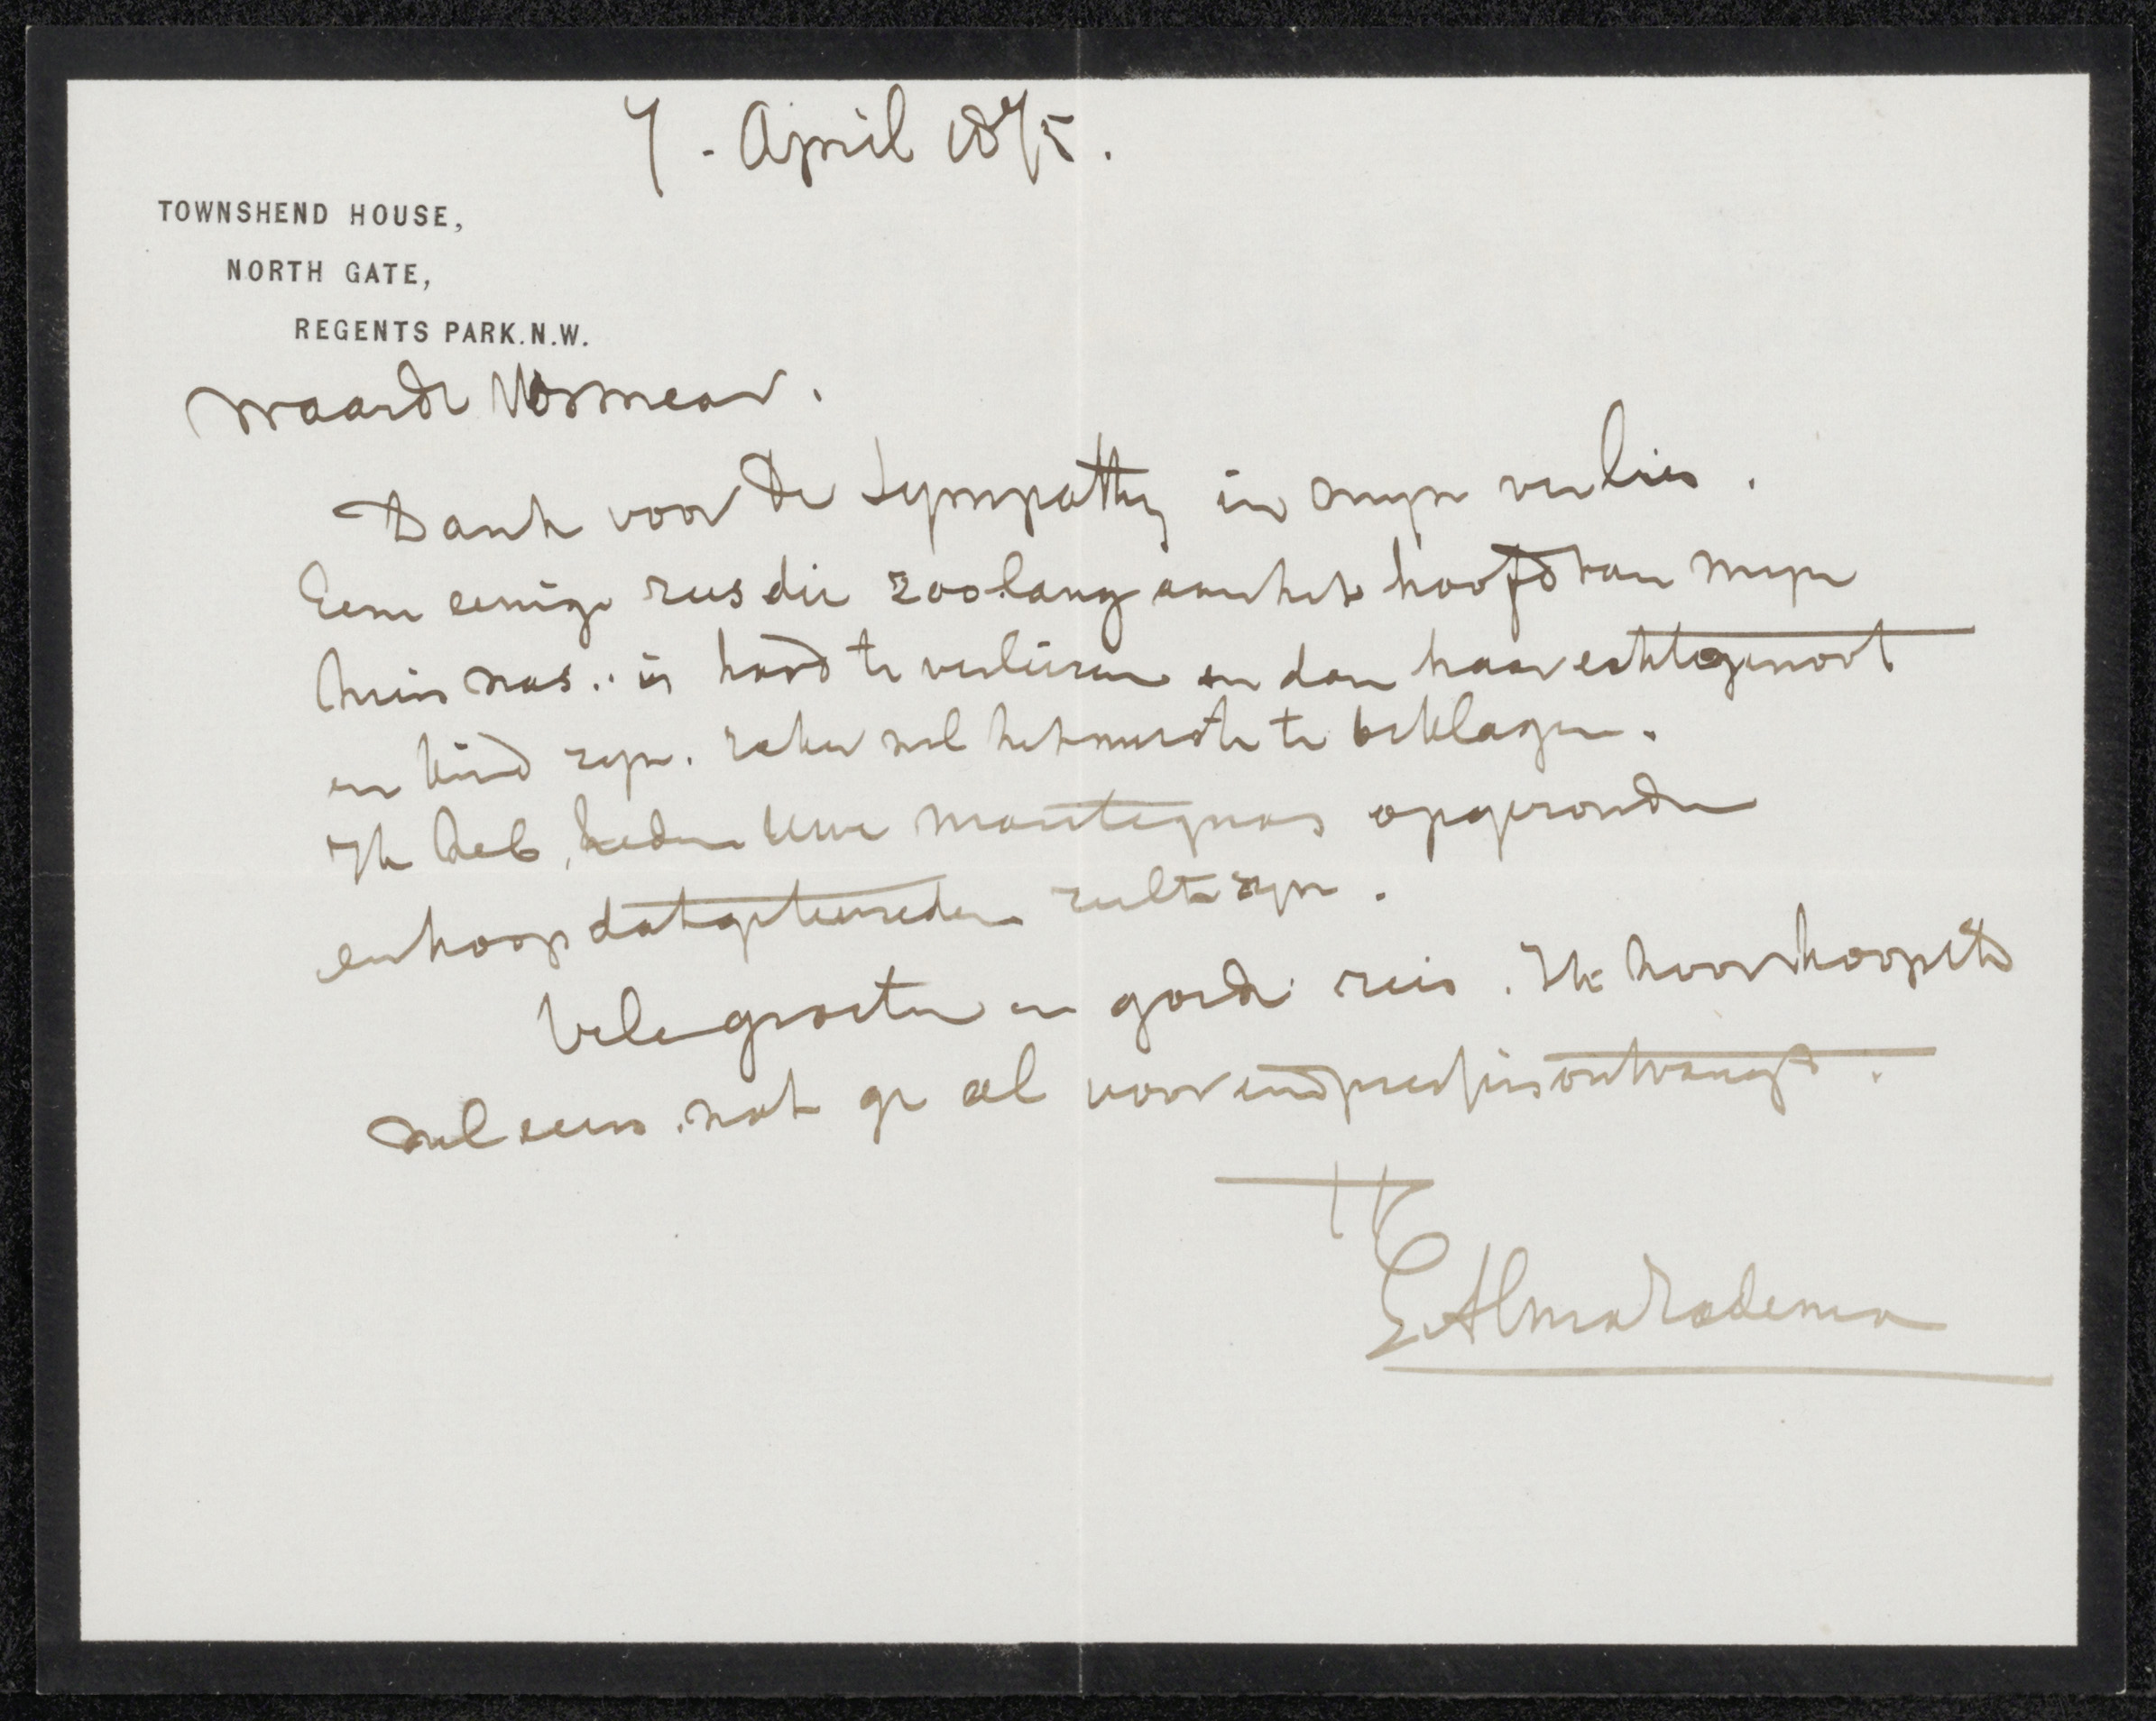 7. April 1875.
TOWNSHEND HOUSE,
NORTH GATE,
REGENTS PARK. N.W.
Waarde Vosmaer.
Dank voor de Sympathy in myn verlies.
Eene eenige zus die zoolang aan het hoofd van myn
huis was.. is hard te verliezen en dan haar echtgenoot
en kind zyn. zeker wel het meeste te beklagen.
Ik heb, heden Uwe mantegnas opgezonden
en hoop dat ge tevreden zult zyn.
Vele groeten en goede reis. Ik hoor hoop ik
wel eens. wat ge al voor indrukken ontvangt.
tt
L Alma Tadema